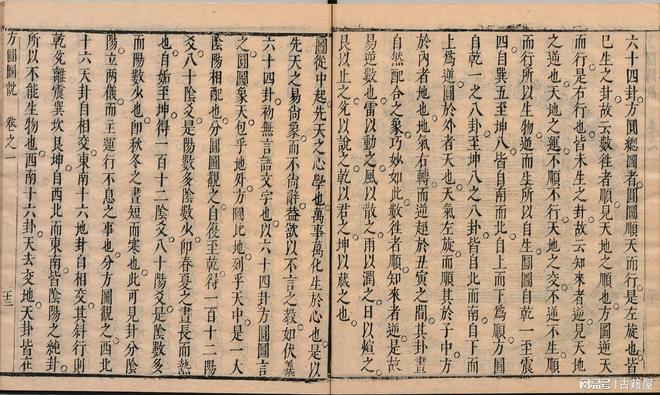 六十四卦方圓總圖者圓圖順天而行是左旋也皆
已生之卦故云數往者順見天地之順也方圖逆天
而行是右行也皆未生之卦故云知來者逆見天地
之逆也天地之運不順不行天地之交不逆不生順
而行所以生物逆而生所以自生圓圖自乾一至震
四自巽五至坤八皆自南而北自上而下為順方圖
自乾一之八卦至坤八之八卦皆自北而南自下而
上為逆圓於外者天也天氣左旋而順其於子中方
於內者地也地氣右轉而逆起於丑寅之間其卦畫
自然配合之象巧妙如此數往者順知來者逆是故
易逆數也雷以動之風以散之雨以潤之日以烜之
艮以止之兌以說之乾以君之坤以藏之也
圖從中起先天之心學也萬事萬化生於心也是以
先天之易尚象而不尚辭葢欲以不言之教如伏羲
六十四卦初無言語文字也以六十四卦方圓圖言
之圓圖象天包乎地外方圖比地列乎天中是一大
陰陽相配也分圓圖觀之自復至乾得一百十二陽
爻八十陰爻是陽數多陰數少卽春夏之晝長而熱
也自姤至坤得一百十二陰爻八十陽爻是陰數多
而陽數少也卽秋冬之晝短而寒也此可見卦分陰
陽立兩儀而主運行不息之事也分方圖觀之西北
十六天卦自相交東南十六地卦自相交其斜行則
乾兌離震巽坎艮坤自西北而東南皆陰陽之純卦
所以不能生物也西南十六卦天去交地天卦皆在
方圓圖說 卷之一 二十三
网易号 古籍屋